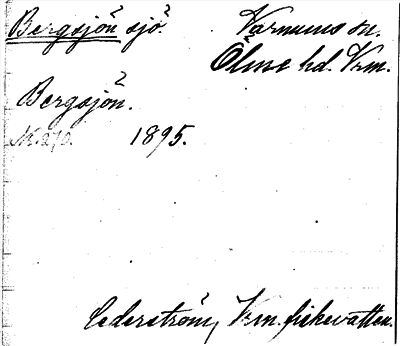 Bergsjön sjö. Varnums sn.
Ölme hd. Vrm.
Bergsjön.
N:270. 1895.
Cederström, Vrm. fiskevatten.